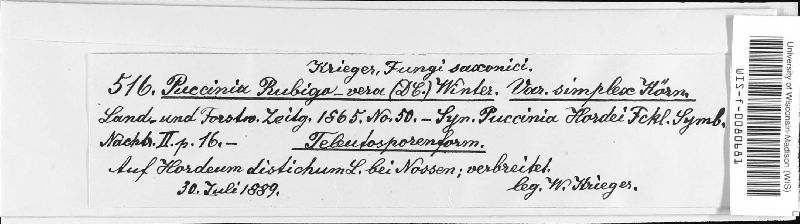 Krieger, Fungi saxonici.
516. Puccinia Rubigo-vera (DC.) Winter. Var. simplex Körn.
Land- und Forstw. Zeitg. 1865. No. 50. – Syn. Puccinia Hordei Fckl. Symb.
Nachtr. II. p. 16. – Teleutosporenform.
Auf Hordeum distichum L. bei Nossen; verbreitet.
30. Juli 1889. leg. W. Krieger.
University of Wisconsin-Madison (WIS)
WIS-f-0080681